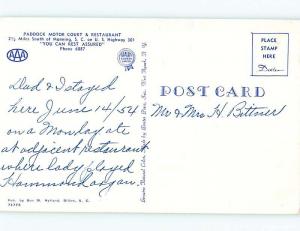 PADDOCK MOTOR COURT & RESTAURANT
2½ Miles South of Manning, S. C. on U. S. Highway 301
"YOU CAN REST ASSURED"
Phone 6887
AAA
PLACE
STAMP
HERE
POST CARD
Dad & I stayed
here June 14/54
on a Monday ate
at adjacent restaurant
where lady played
Hammond organ.
Mr & Mrs H Bittner
Pub. by Dillon, S. C.